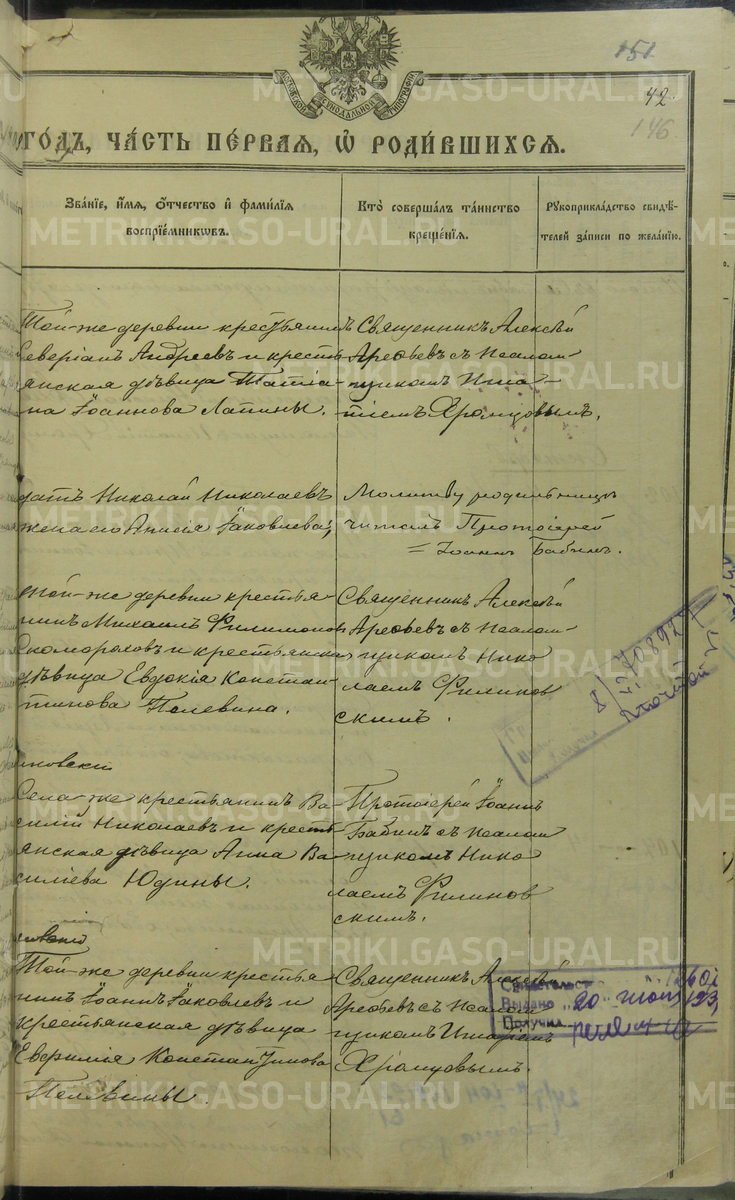 151
42
146
МОСКОВСКОЙ СѴНОДАЛЬНОЙ ТИПОГРАФІИ
годъ, часть первая, ѡ родившихся.
Званіе, имя, отчество и фамилія
воспріемниковъ.
Кто совершалъ таинство
крещенія.
Рукоприкладство свидѣ-
телей записи по желанію.
Той-же деревни крестьянинъ
Северіанъ Андреевъ и кресть
янская дѣвица Татіа-
на Іоаннова Лапины.
Священникъ Алексѣй
Арефьевъ съ псалом-
щикомъ Игна-
тіемъ Хромцовымъ.
датъ Николай Николаевъ
жена его Анисія Іаковлева;
Молитву родильницѣ
читалъ Протоіерей
= Іоаннъ Бабинъ.
Той-же деревни крестья-
нинъ Михаилъ Филимоновъ
Скомороховъ и крестьянская
дѣвица Евдокія Констан-
тинова Полевина.
Священникъ Алексѣй
Арефьевъ съ псалом-
щикомъ Нико
лаемъ Филинов
скимъ.
708927
Села-же крестьянинъ Ва-
силій Николаевъ и кресть
янская дѣвица Анна Ва-
силіева Юдины.
Протоіерей Іоаннъ
Бабинъ съ псалом
щикомъ Нико
лаемъ Филинов
скимъ.
Той-же деревни крестья
нинъ Іоаннъ Іаковлевъ и
крестьянская дѣвица
Евфимія Константинова
Полевины.
Священникъ Алексѣй
Арефьевъ съ псалом
щикомъ Игнатіемъ
Хромцовымъ.
Выдано „20"
Получил
METRIKI.GASO-URAL.RU